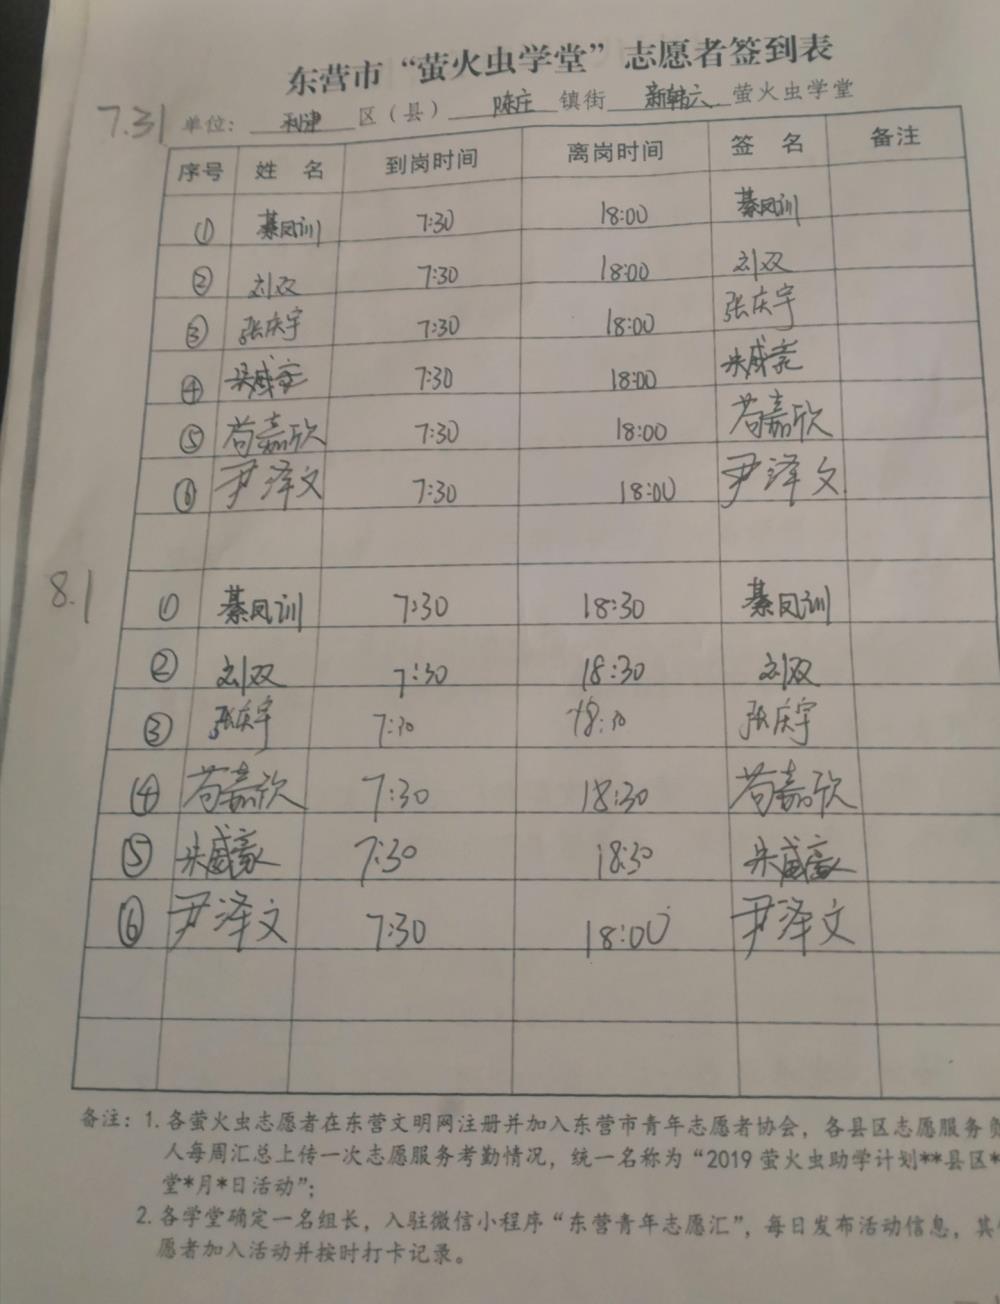 东营市“萤火虫学堂”志愿者签到表
7.31 单位：利津 区（县） 陈庄 镇街 新韩六 萤火虫学堂
序号 姓 名 到岗时间 离岗时间 签 名 备注
① 綦凤训 7:30 18:00 綦凤训
② 刘双 7:30 18:00 刘双
③ 张庆宇 7:30 18:00 张庆宇
④ 7:30 18:00
⑤ 苟嘉欣 7:30 18:00 苟嘉欣
⑥ 尹泽文 7:30 18:00 尹泽文
8.1 ① 綦凤训 7:30 18:30 綦凤训
② 刘双 7:30 18:30 刘双
③ 张庆宇 7:30 18:30 张庆宇
④ 苟嘉欣 7:30 18:30 苟嘉欣
⑤ 7:30 18:30
⑥ 尹泽文 7:30 18:00 尹泽文
备注：1. 各萤火虫志愿者在东营文明网注册并加入东营市青年志愿者协会，各县区志愿服务负
人每周汇总上传一次志愿服务考勤情况，统一名称为“2019 萤火虫助学计划**县区*
堂*月*日活动”；
2. 各学堂确定一名组长，入驻微信小程序“东营青年志愿汇”，每日发布活动信息，其
愿者加入活动并按时打卡记录。